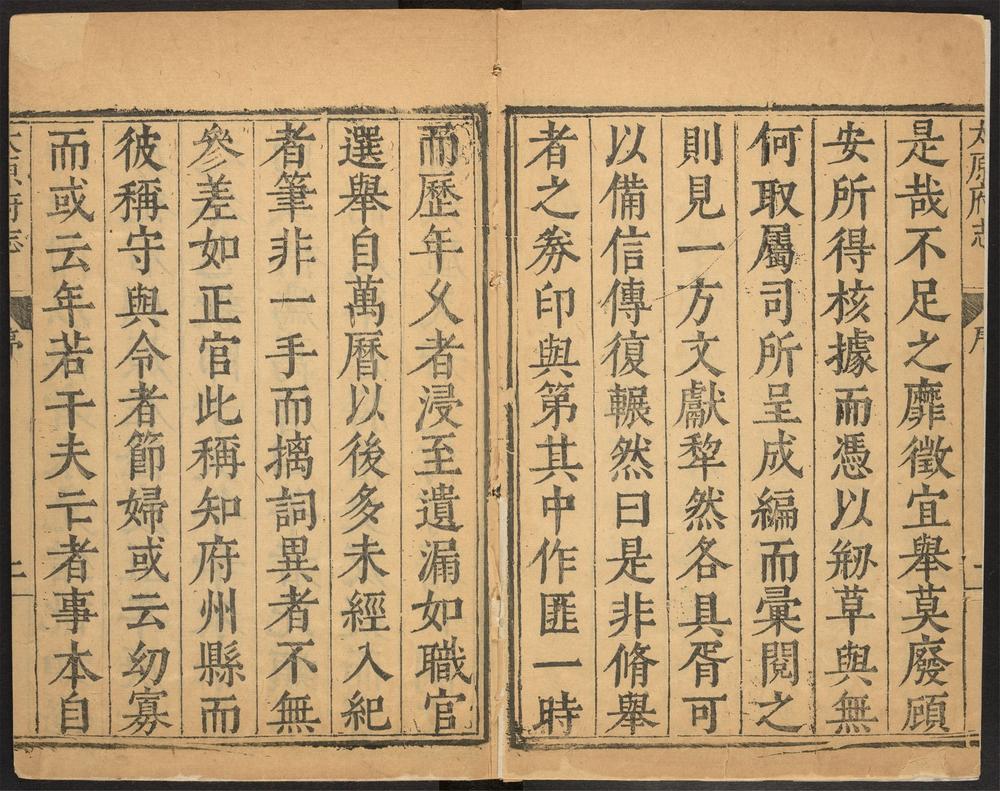 太原府志 序
是哉不足之靡徵宜舉莫廢顧
安所得核據而憑以剏草與無
何取屬司所呈成編而彙閱之
則見一方文獻犂然各具胥可
以備信傳復輾然曰是非脩舉
者之劵印與第其中作匪一時
而歷年乆者浸至遺漏如職官
選舉自萬曆以後多未經入紀
者筆非一手而摛詞異者不無
參差如正官此稱知府州縣而
彼稱守與令者節婦或云幼寡
而或云年若干夫亡者事本自
太原府志 序 二